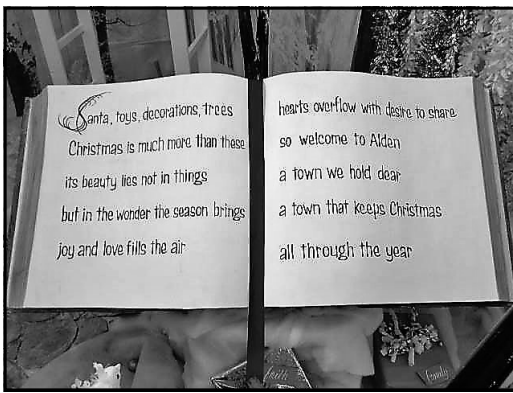 Santa, toys, decorations, trees
Christmas is much more than these
its beauty lies not in things
but in the wonder the season brings
joy and love fills the air
hearts overflow with desire to share
so welcome to Alden
a town we hold dear
a town that keeps Christmas
all through the year
faith
family